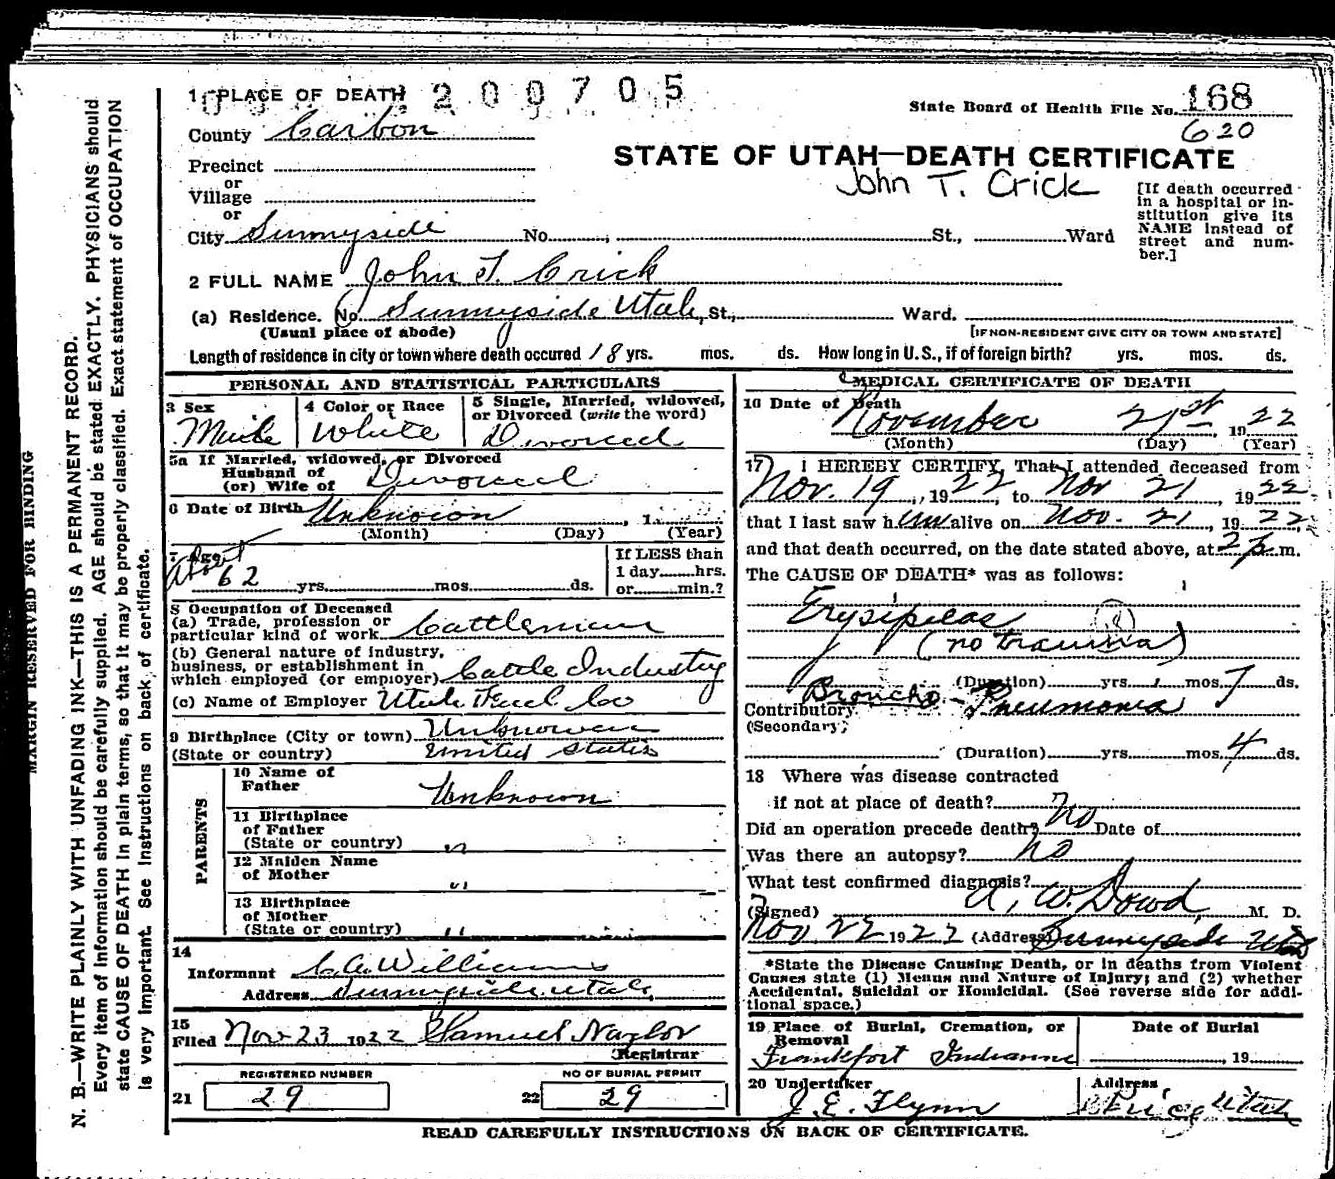 1 PLACE OF DEATH 200705
State Board of Health File No. 168
County Carbon
620
Precinct
STATE OF UTAH—DEATH CERTIFICATE
or
John T. Crick
Village
or
City Sunnyside No. , St., Ward
[If death occurred in a hospital or institution give its NAME instead of street and number.]
2 FULL NAME John T. Crick
(a) Residence. No. Sunnyside Utah, St., Ward.
(Usual place of abode) [IF NON-RESIDENT GIVE CITY OR TOWN AND STATE]
Length of residence in city or town where death occured 18 yrs. mos. ds. How long in U.S., if of foreign birth? yrs. mos. ds.
PERSONAL AND STATISTICAL PARTICULARS
3 Sex 4 Color or Race 5 Single, Married, widowed, or Divorced (write the word)
Male White Divorced
5a If Married, widowed, or Divorced
Husband of
(or) Wife of Divorced
6 Date of Birth Unknown , 1
(Month) (Day) (Year)
7 Age
About 62 yrs. mos. ds.
If LESS than
1 day hrs.
or min.?
8 Occupation of Deceased
(a) Trade, profession or
particular kind of work Cattleman
(b) General nature of industry,
business, or establishment in
which employed (or employer) Cattle Industry
(c) Name of Employer Utah Fuel Co
9 Birthplace (City or town) Unknown
(State or country) United States
PARENTS
10 Name of
Father Unknown
11 Birthplace
of Father
(State or country) "
12 Maiden Name
of Mother "
13 Birthplace
of Mother
(State or country) "
14
Informant C. A. Williams
Address Sunnyside Utah,
15
Filed Nov 23 1922 Samuel Naylor
Registrar
REGISTERED NUMBER NO OF BURIAL PERMIT
21 29 22 29
MEDICAL CERTIFICATE OF DEATH
16 Date of Death
November 21st, 1922
(Month) (Day) (Year)
17 I HEREBY CERTIFY, That I attended deceased from
Nov. 19, 1922, to Nov 21, 1922
that I last saw him alive on Nov. 21, 1922
and that death occurred, on the date stated above, at 2 p.m.
The CAUSE OF DEATH* was as follows:
Erysipelas
(no trauma)
(Duration) yrs. mos. 7 ds.
Contributory Broncho-Pneumonia
(Secondary)
(Duration) yrs. mos. 4 ds.
18 Where was disease contracted
if not at place of death?
Did an operation precede death? no Date of
Was there an autopsy? no
What test confirmed diagnosis?
(Signed) A. W. Dowd, M. D.
Nov 22 1922 (Address) Sunnyside Utah
*State the Disease Causing Death, or in deaths from Violent
Causes state (1) Means and Nature of Injury; and (2) whether
Accidental, Suicidal or Homicidal. (See reverse side for additional space.)
19 Place of Burial, Cremation, or Removal Date of Burial
Frankfort Indiana , 19
20 Undertaker Address,
J. E. Flynn Price Utah
READ CAREFULLY INSTRUCTIONS ON BACK OF CERTIFICATE.
MARGIN RESERVED FOR BINDING
N. B.—WRITE PLAINLY WITH UNFADING INK—THIS IS A PERMANENT RECORD.
Every item of information should be carefully supplied. AGE should be stated EXACTLY. PHYSICIANS should
state CAUSE OF DEATH in plain terms, so that it may be properly classified. Exact statement of OCCUPATION
is very important. See instructions on back of certificate.